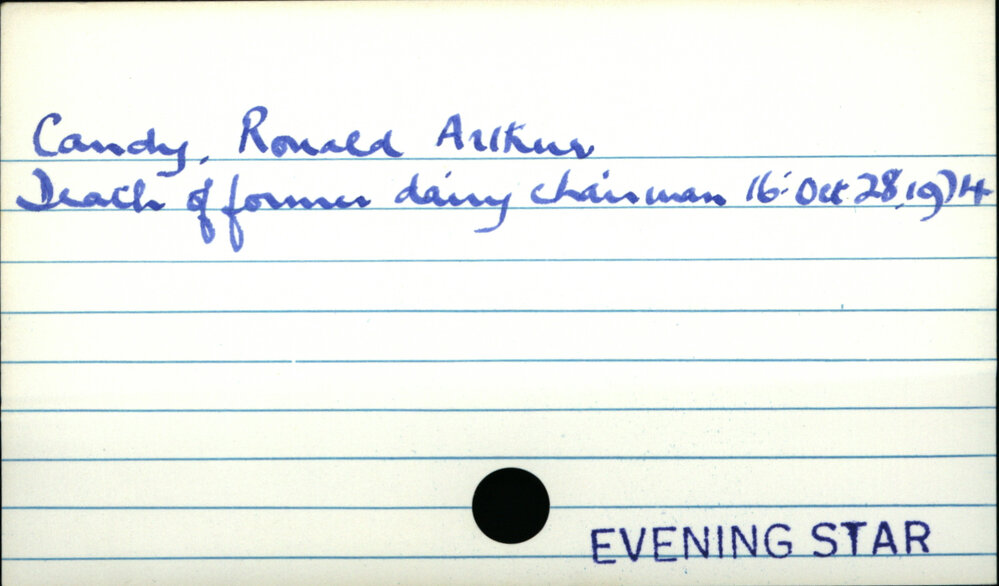 Candy, Ronald Arthur
Death of former dairy chairman 16: Oct 28, 1974
EVENING STAR